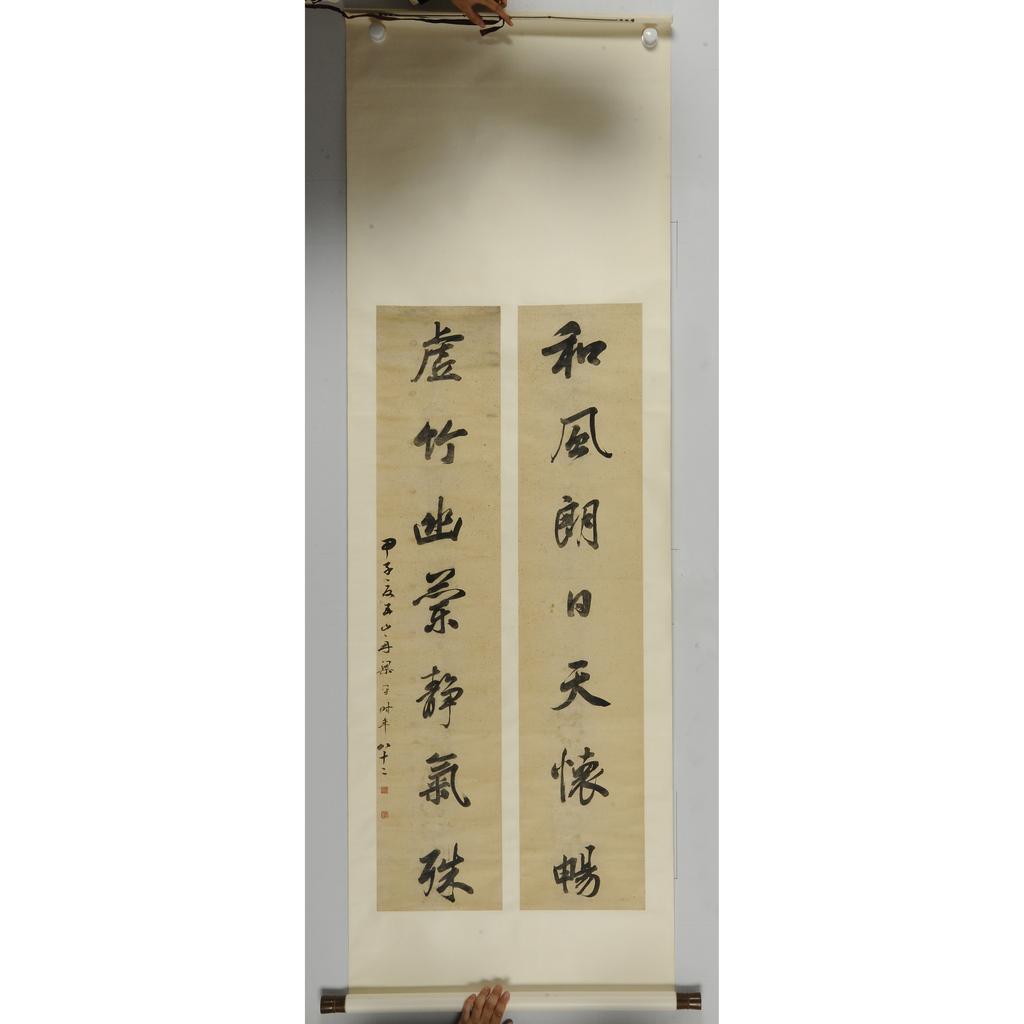 和風朗日天懷暢
虛竹幽蘭靜氣殊
甲子夏五山舟梁時年八十二